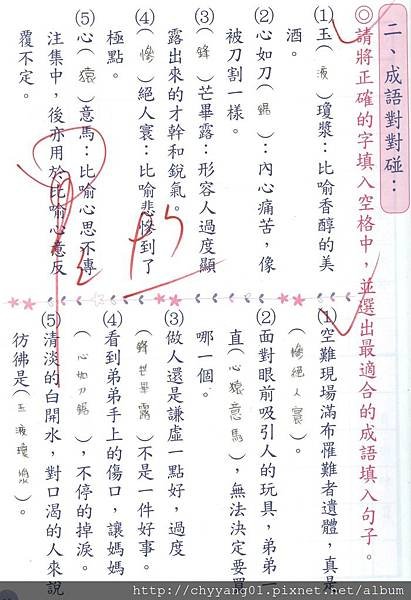 二、成語對對碰：
◎請將正確的字填入空格中，並選出最適合的成語填入句子。
⑴玉（液）瓊漿：比喻香醇的美
酒。
⑵心如刀（鋸）：內心痛苦，像
被刀割一樣。
⑶（鋒）芒畢露：形容人過度顯
露出來的才幹和銳氣。
⑷（慘）絕人寰：比喻悲慘到了
極點。
⑸心（猿）意馬：比喻心思不專
注集中，後亦用於比喻心意反
覆不定。
⑴空難現場滿布罹難者遺體，真是
（慘絕人寰）。
⑵面對眼前吸引人的玩具，弟弟一
直（心猿意馬），無法決定要買
哪一個。
⑶做人還是謙虛一點好，過度
（鋒芒畢露）不是一件好事。
⑷看到弟弟手上的傷口，讓媽媽
（心如刀鋸），不停的掉淚。
⑸清淡的白開水，對口渴的人來說
彷彿是（玉液瓊漿）。
http://chyyang01.pixnet.net/blog